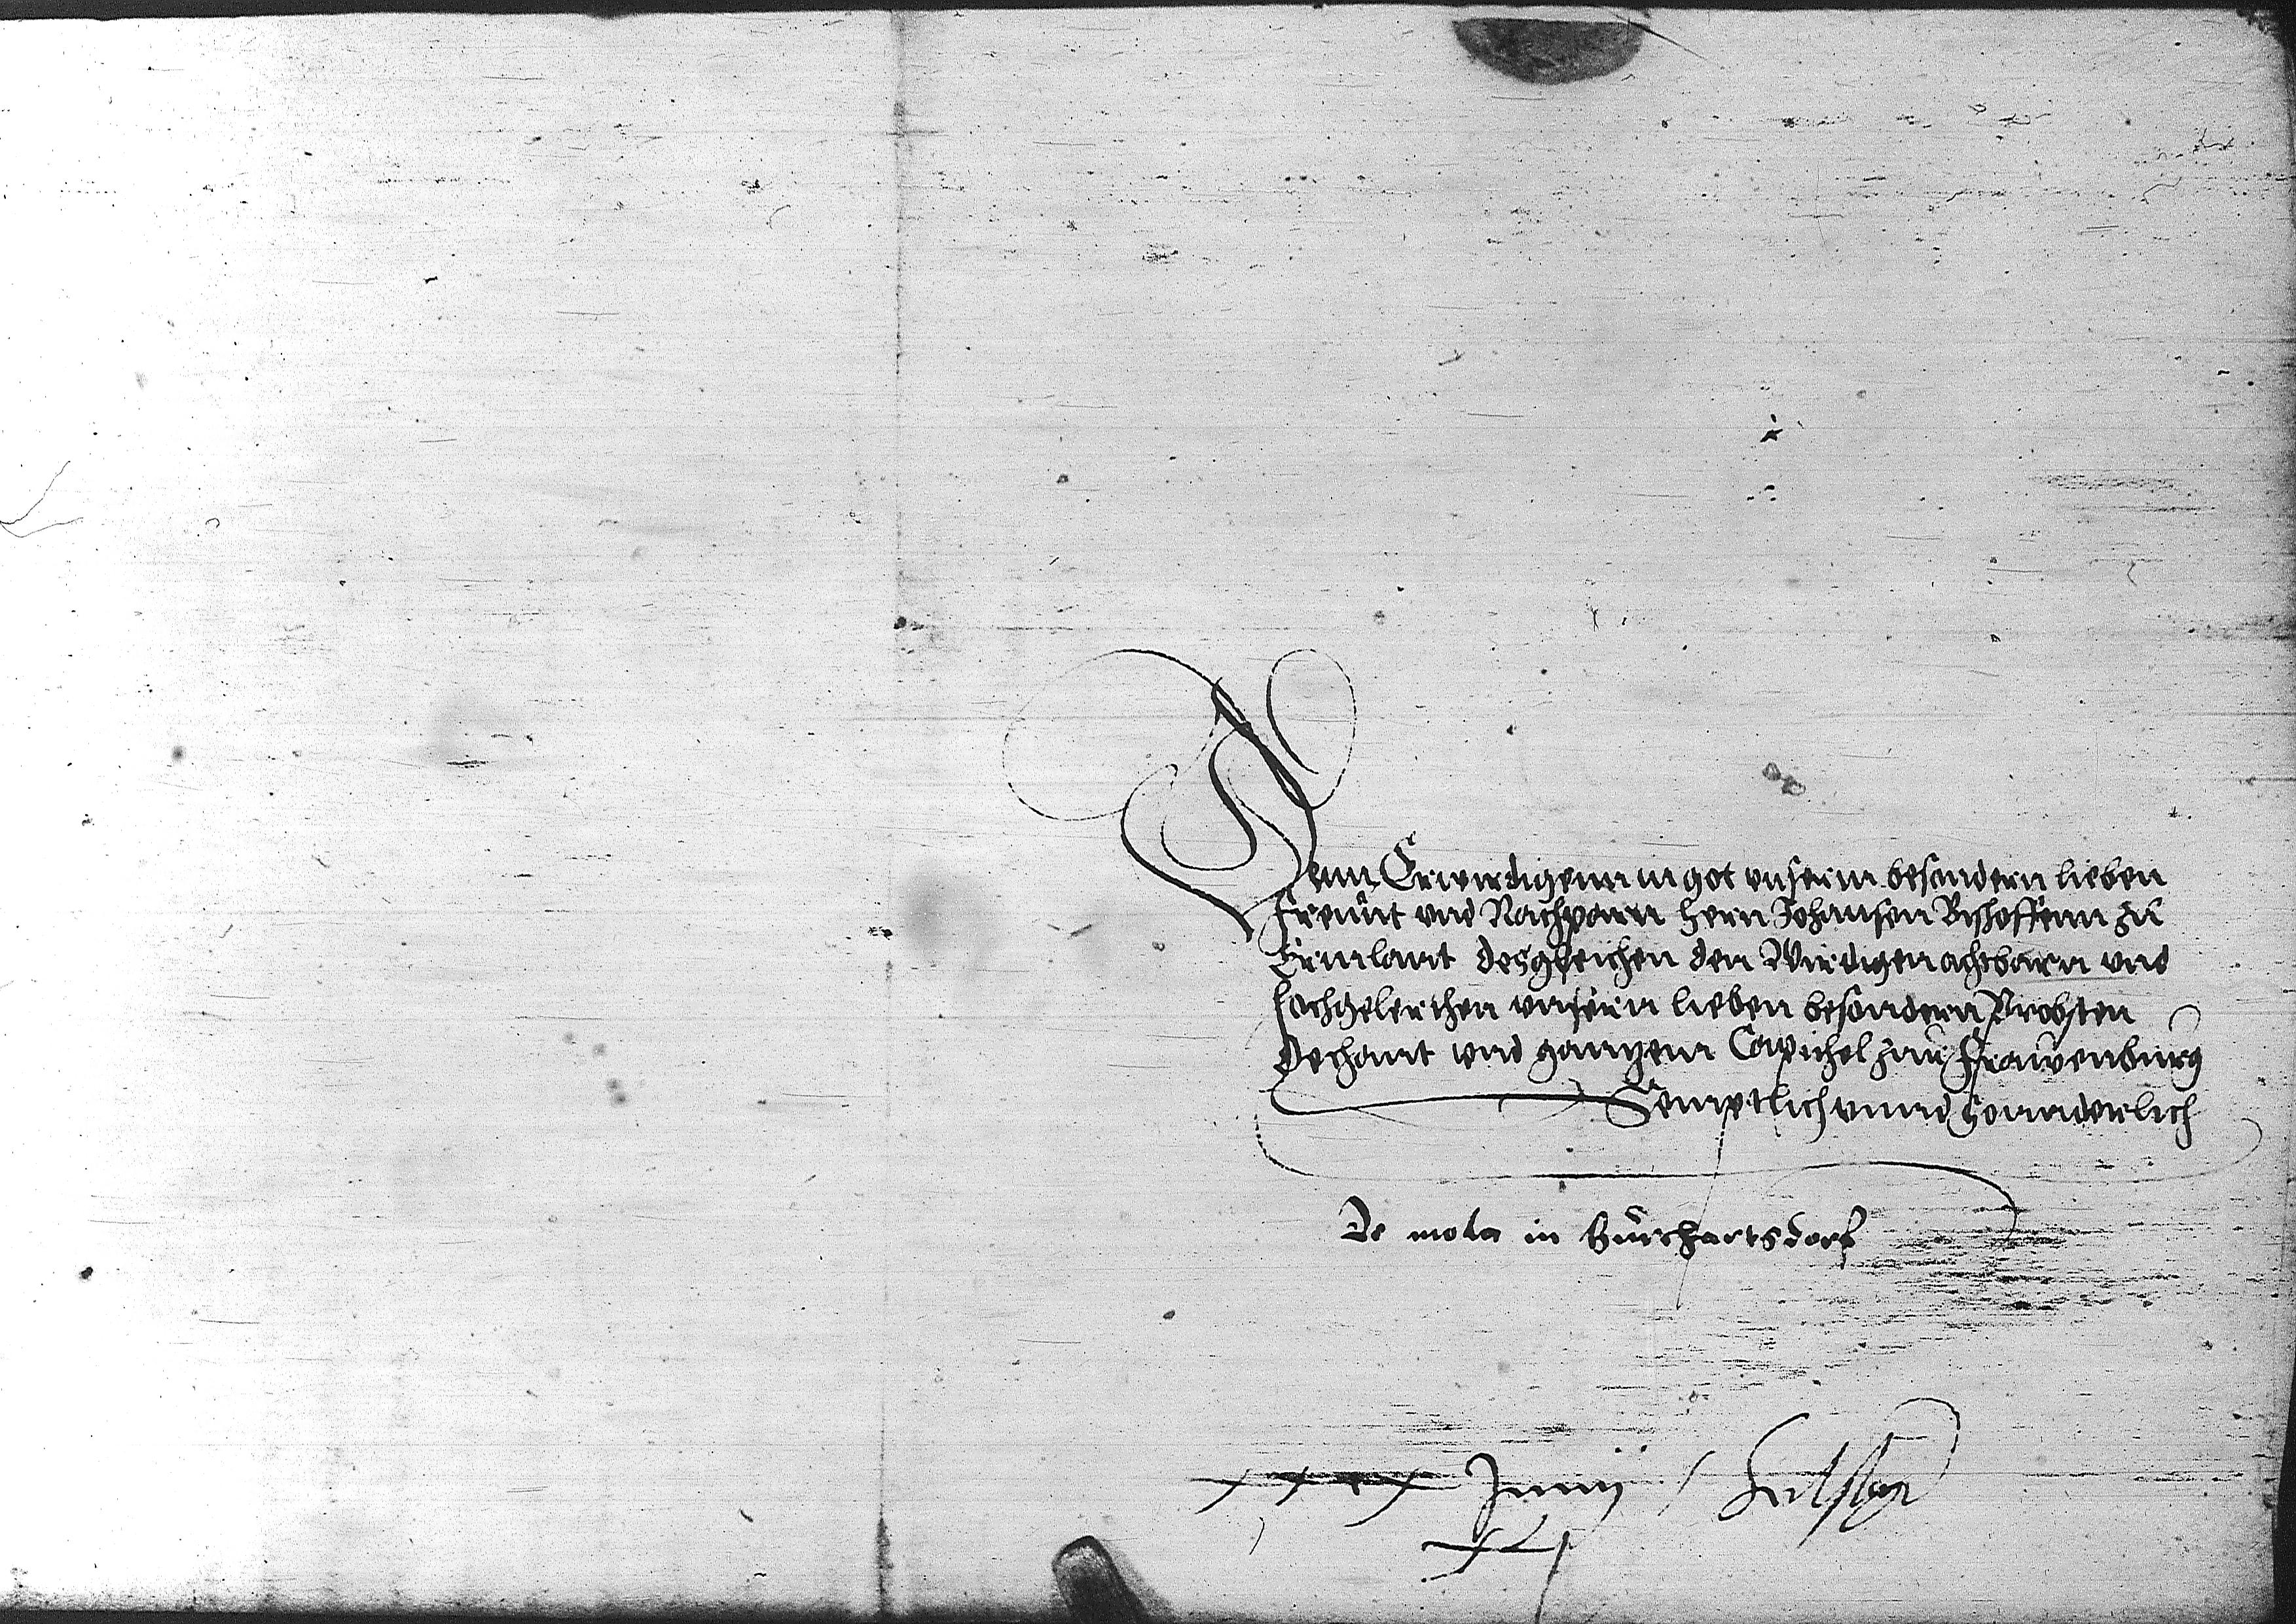 Denn Erwirdigenn in got vnserm besondern lieben
Freunt vnd Nachparn Hern Johansen Bischoffenn zu
Ermlant desgleichen den Wirdigen achtbarn vnd
hochgelerthen vnsern lieben besondern Probsten
Dechant vnd gantzem Capithel zur Frawenburg
Semptlich vnnd Sonnderlich
De mola in Burchartsdorf
Junij /